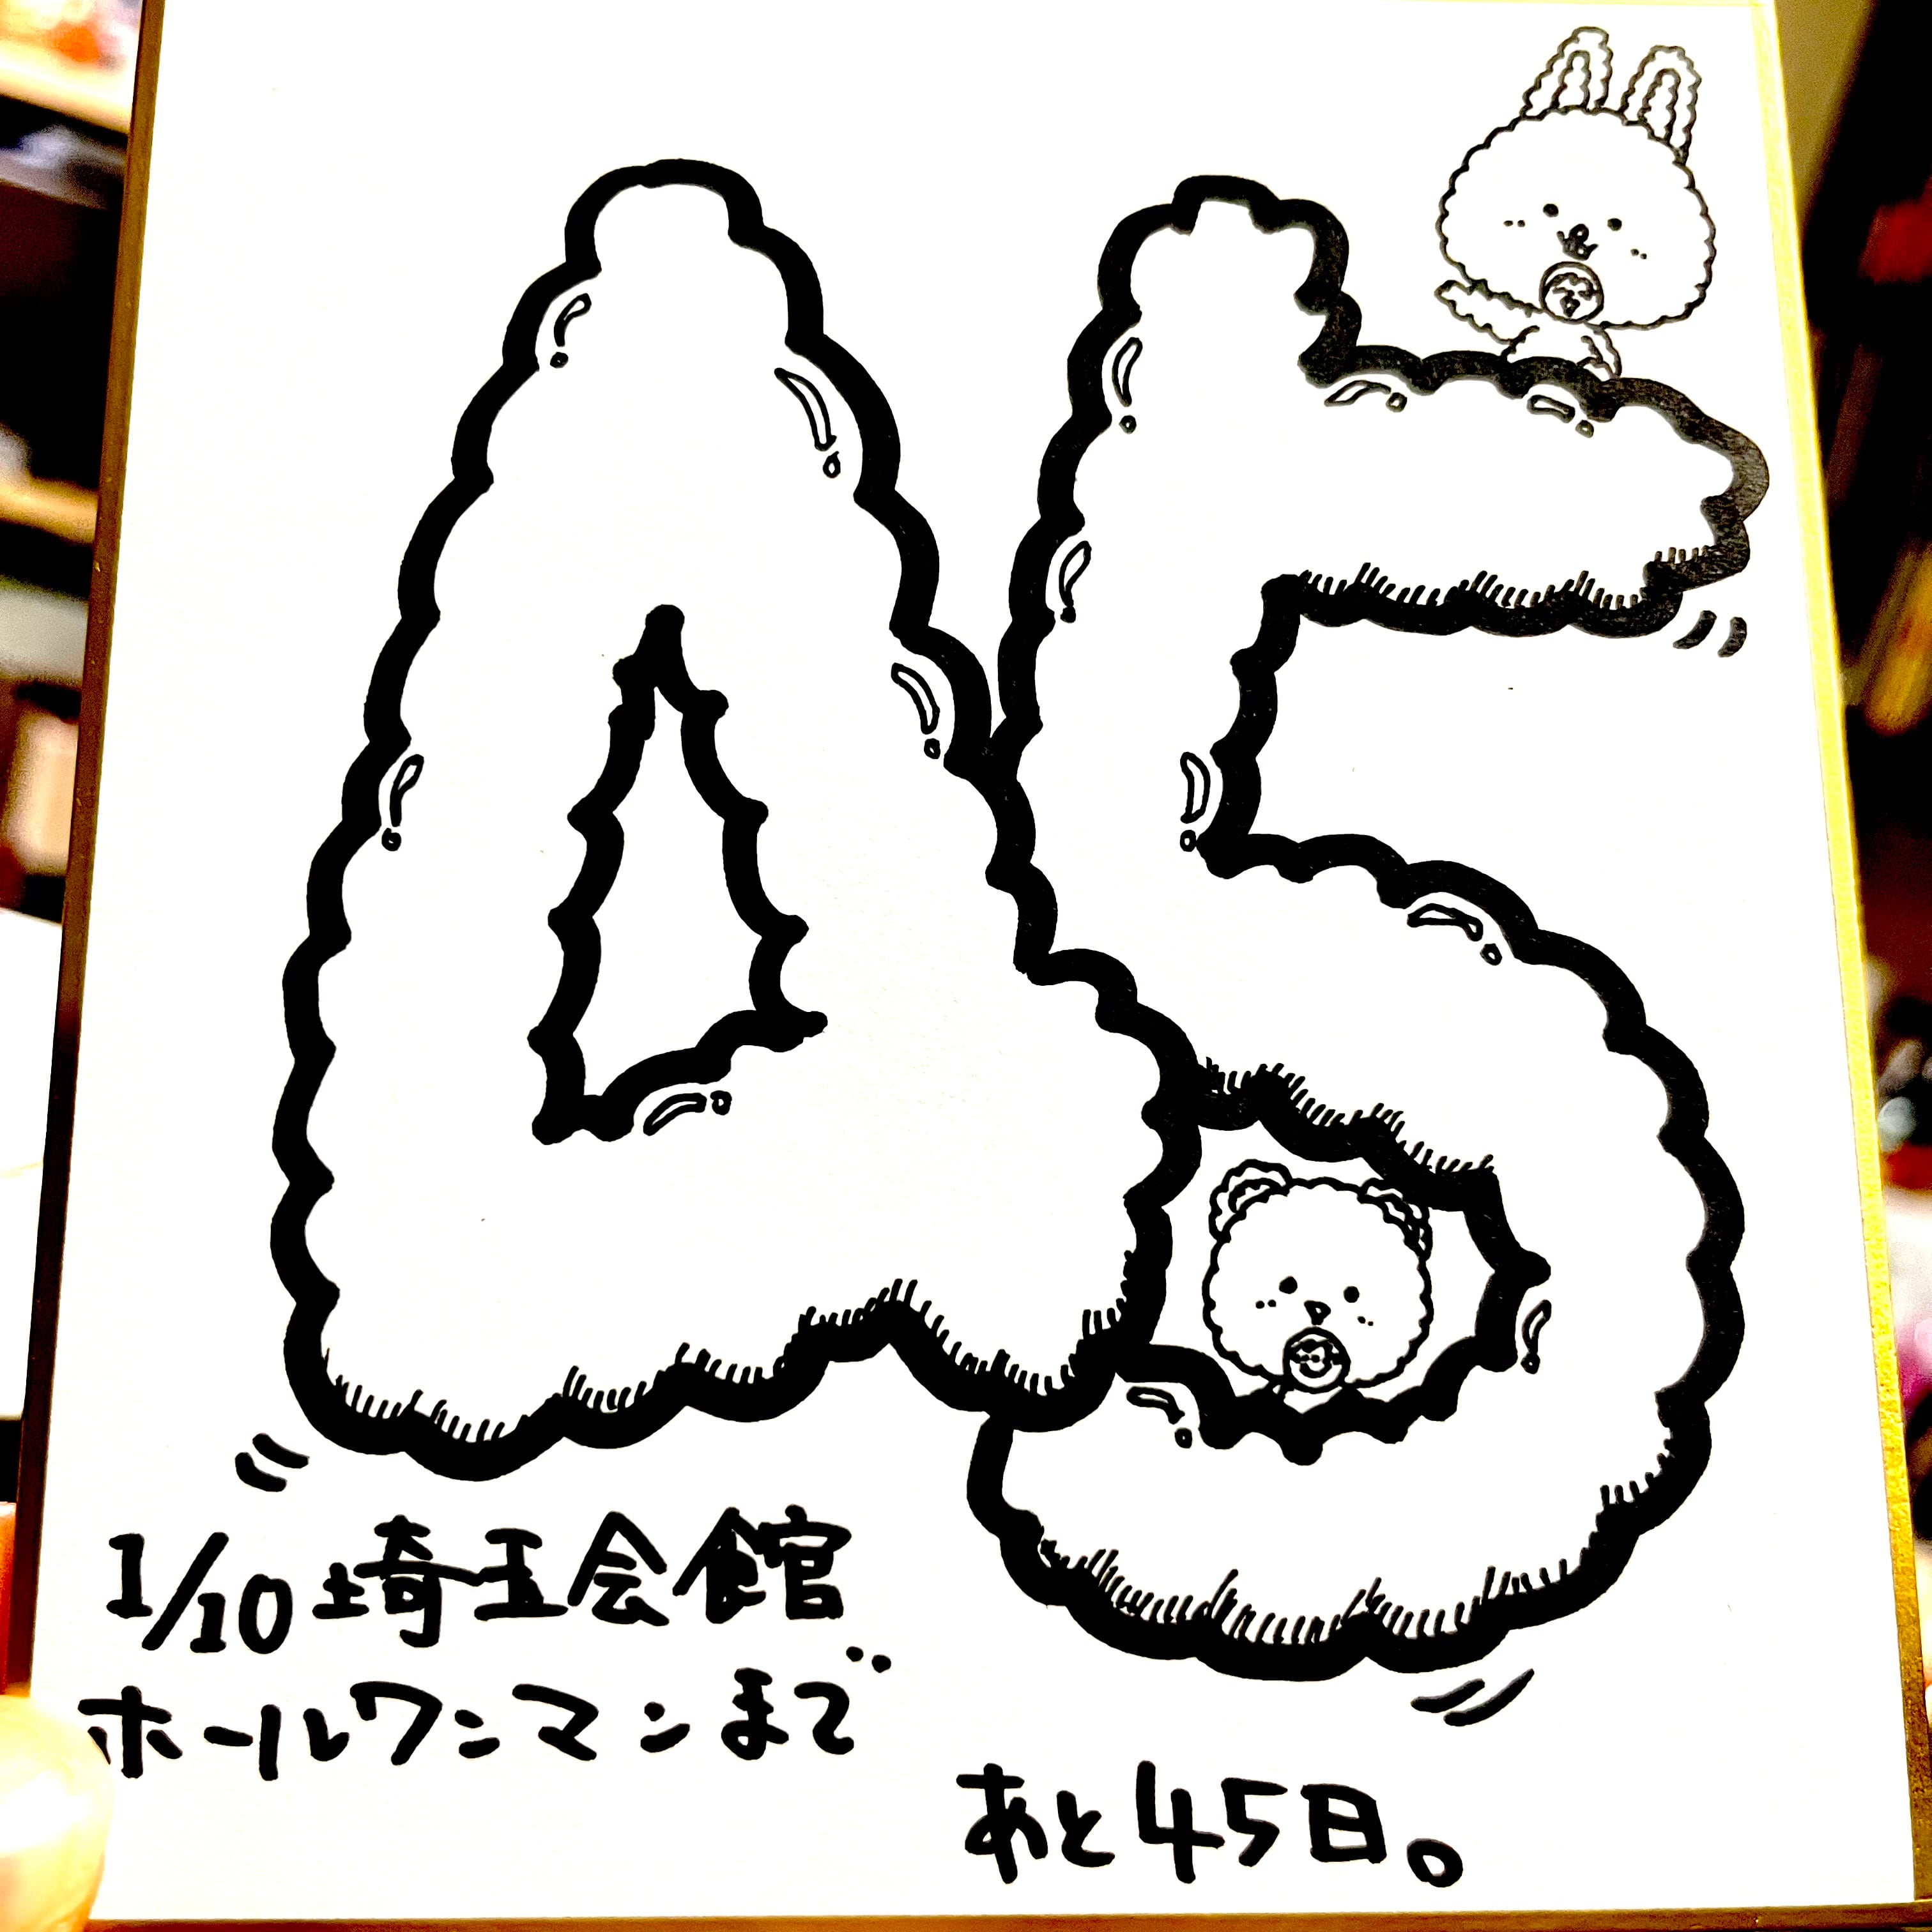 45
1/10 埼玉会館
ホールワンマンまで
あと45日。